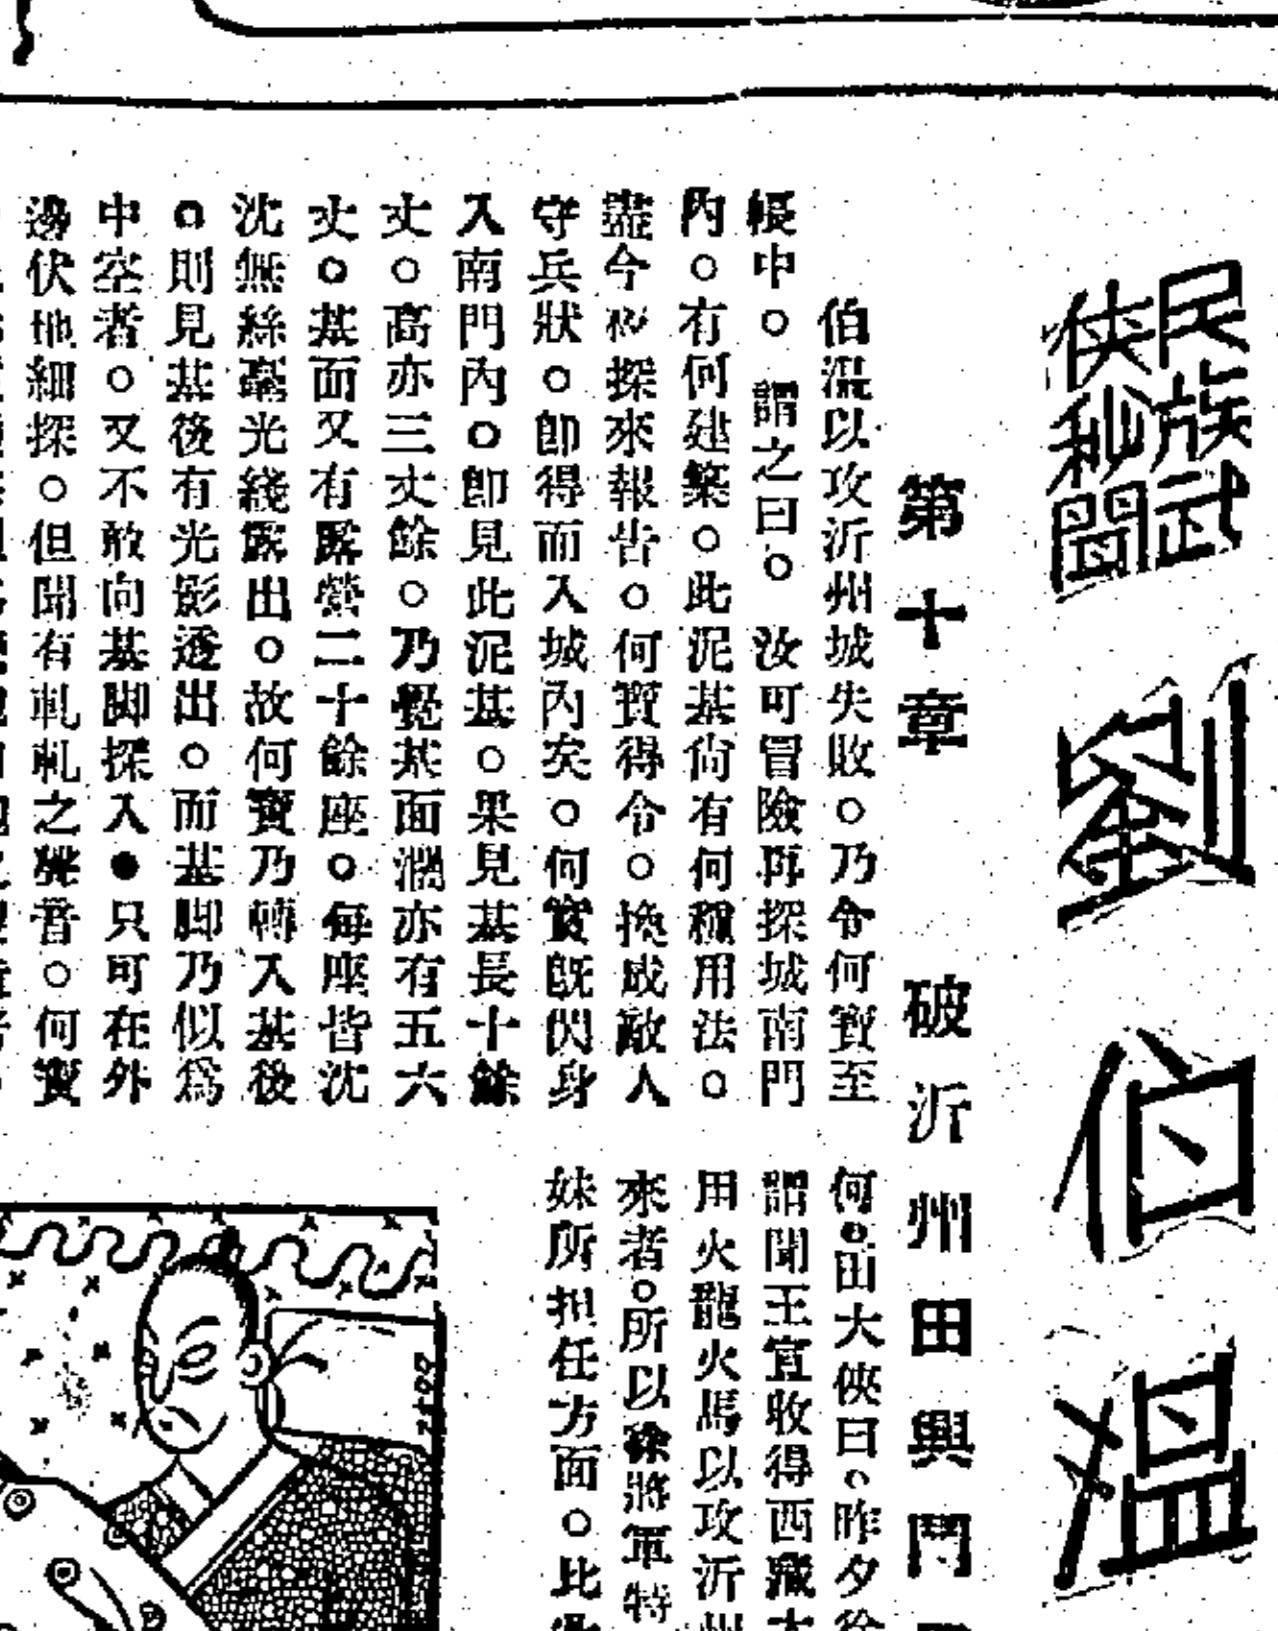 民族武
俠秘聞
劉伯溫
第十章　破沂州田興鬥
伯溫以攻沂州城失敗。乃令何寶至
帳中。謂之曰。汝可冒險再探城南門
內。有何建築。此泥基尙有何種用法。
盡今夜探來報告。何寶得令。換成敵人
守兵狀。卽得而入城內矣。何寶既閃身
入南門內。卽見此泥基。果見基長十餘
丈。高亦三丈餘。乃覺基面濶亦有五六
丈。基面又有露營二十餘座。每座皆沈
沈無絲毫光綫露出。故何寶乃轉入基後
。則見基後有光影透出。而基脚乃似爲
中空者。又不敢向基脚探入。只可在外
邊伏地細探。但聞有軋軋之聲音。何寶
何。田大俠曰。昨夕徐
謂聞王宣收得西藏
用火龍火馬以攻沂州
來者。所以徐將軍特
妹所担任方面。比